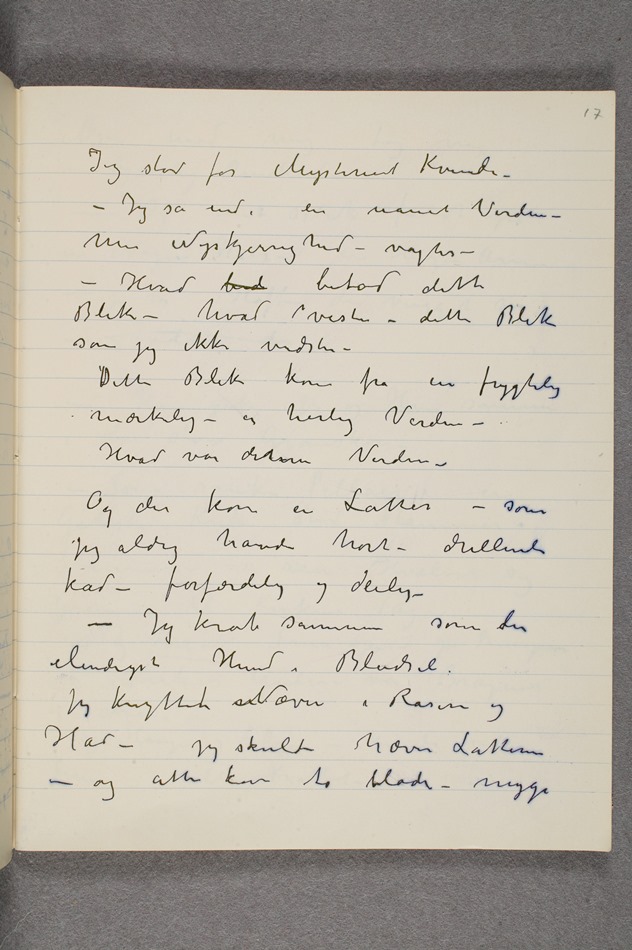 17
Jeg stod for Mysteriet Kvinde –
– Jeg så ind i en uanet Verden –
Min Nyskjerrighed – vagtes –
– Hvad betød dette
Blik – hvad viste – dette Blik
som jeg ikke vidste –
Dette Blik kom fra en frygtelig
mærkelig – en herlig Verden –
Hvad var denne Verden –
Og der kom en Latter – som
jeg aldrig havde hørt – drillende
kåd – forfærdelig og deilig –
– Jeg krøb sammen som den
elendigste Hund i Bludsel.
Jeg knyttet Næven i Raseri og
Had – jeg skulde hævne Latteren
– og atter kom to bløde – myge